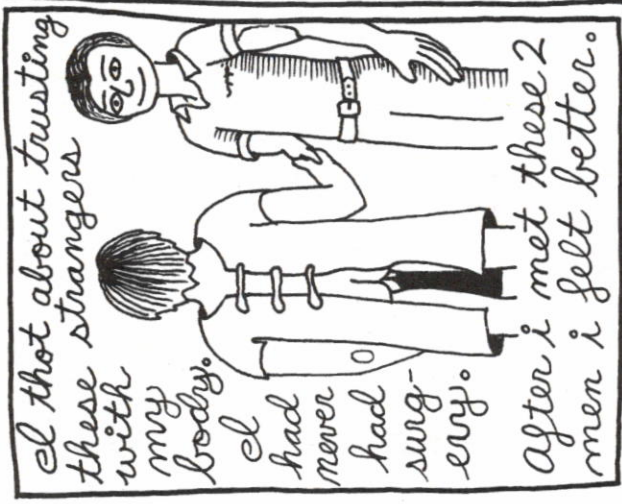 I thot about trusting
these strangers
with
my
body.
I
had
never
had
surg-
ery.
after i met these 2
men i felt better.